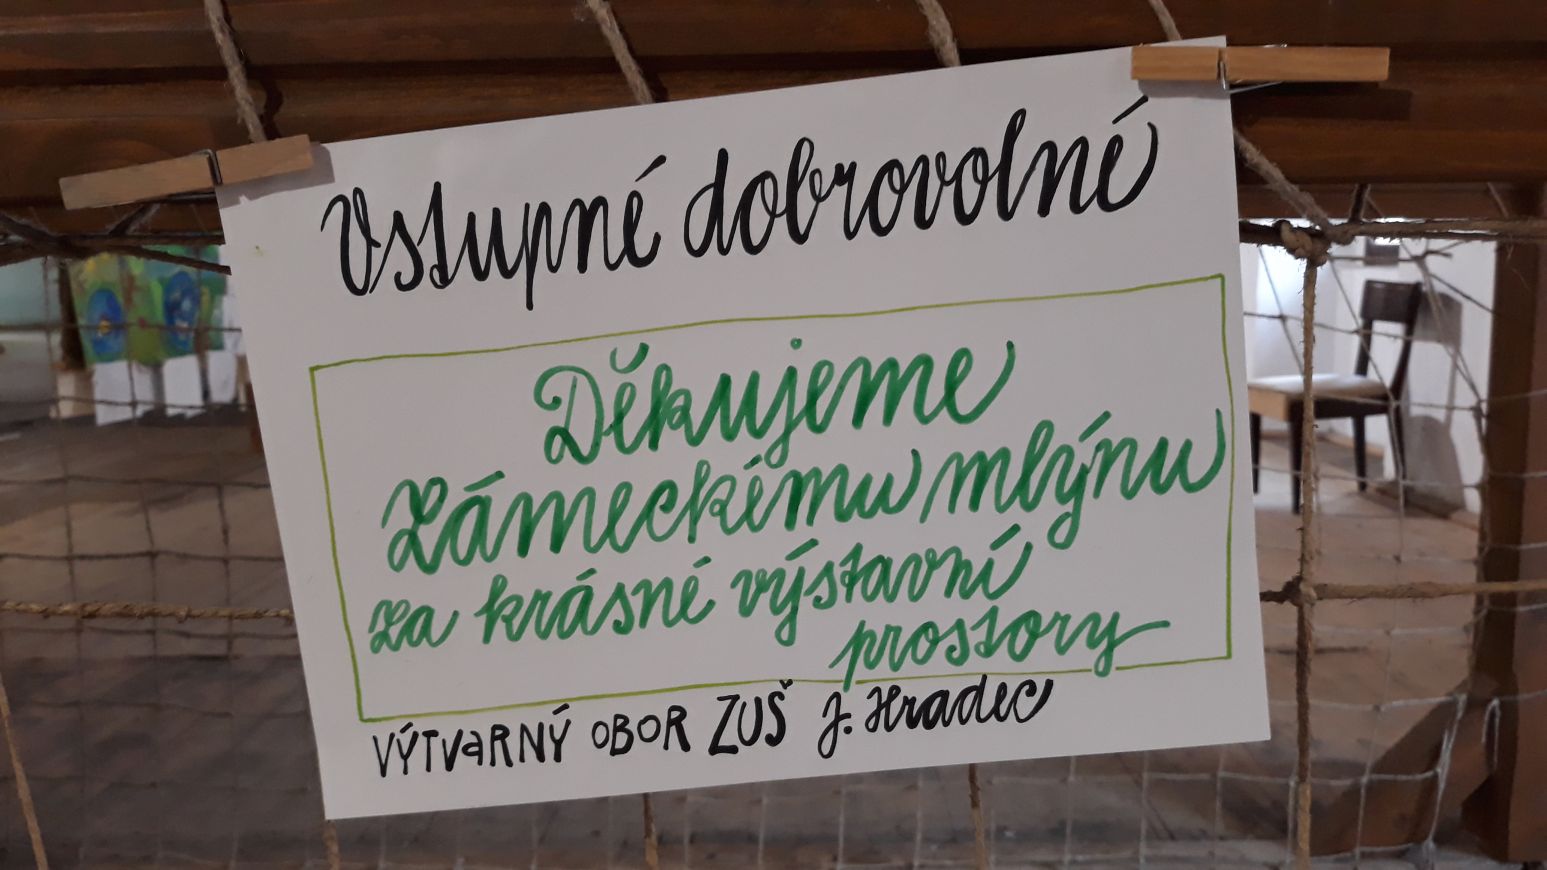 Vstupné dobrovolné
Děkujeme
Zámeckému mlýnu
za krásné výstavní
prostory
VÝTVARNÝ OBOR ZUŠ J. Hradec